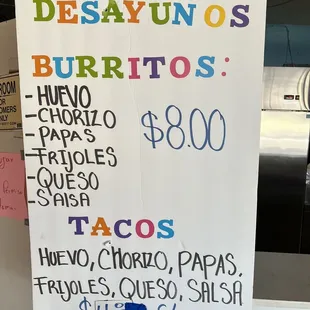 DESAYUNOS
BURRITOS:
-HUEVO
-CHORIZO
-PAPAS
-FRIJOLES
-QUESO
-SALSA
$8.00
TACOS
HUEVO, CHORIZO, PAPAS,
FRIJOLES, QUESO, SALSA
ROOM
FOR
ONLY